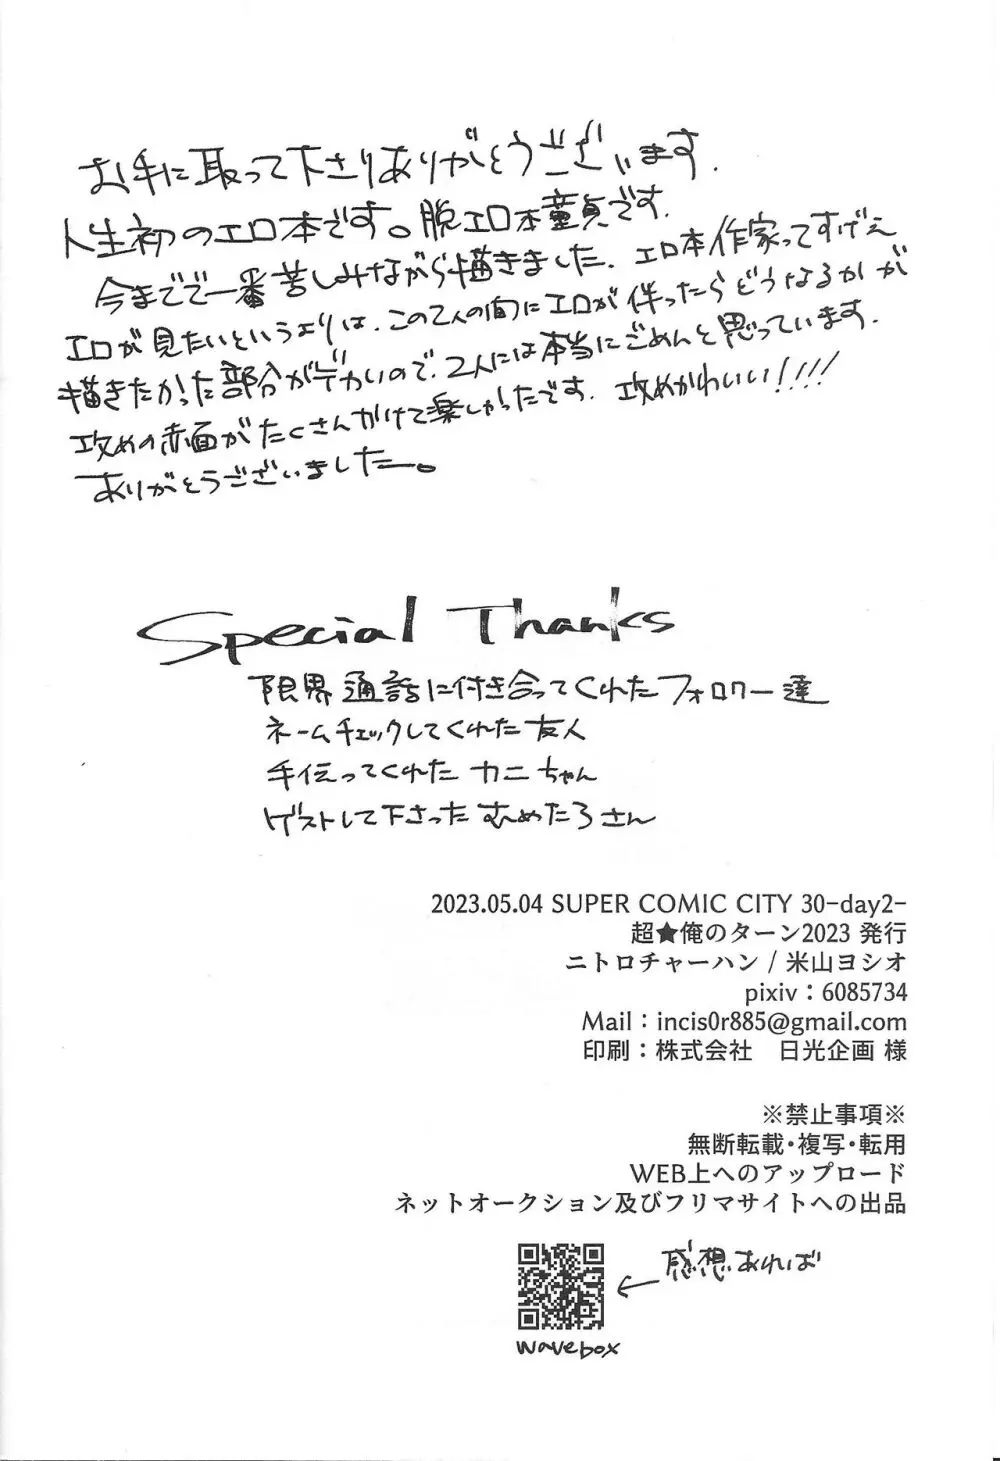 お手に取って下さりありがとうございます.
人生初のエロ本です。脱エロ本童貞です.
今までで一番苦しみながら描きました. エロ本作家ってすげえ
エロが見たいというよりは、この2人の間にエロが伴ったらどうなるかが
描きたかった部分がデカいので、2人には本当にごめんと思っています.
攻めの赤面がたくさんかけて楽しかったです. 攻めかわいい!!!!
ありがとうございました。
Special Thanks
限界通話に付き合ってくれたフォロワー達
ネームチェックしてくれた友人
手伝ってくれたカニちゃん
ゲストして下さったむめたろさん
2023.05.04 SUPER COMIC CITY 30-day2-
超★俺のターン2023 発行
ニトロチャーハン / 米山ヨシオ
pixiv：6085734
Mail：incis0r885@gmail.com
印刷：株式会社　日光企画 様
※禁止事項※
無断転載・複写・転用
WEB上へのアップロード
ネットオークション及びフリマサイトへの出品
感想あれば
wavebox